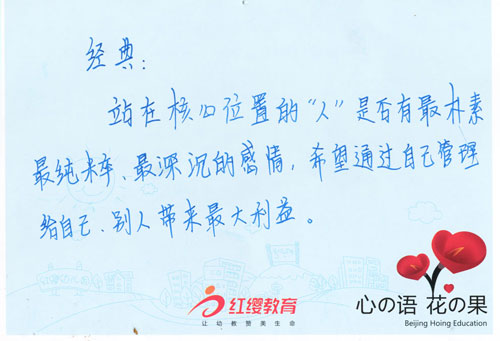 经典：
站在核心位置的“人”是否有最朴素
最纯粹、最深沉的感情，希望通过自己管理
给自己、别人带来最大利益。
红缨教育
让幼教赞美生命
心の语 花の果
Beijing Hoing Education